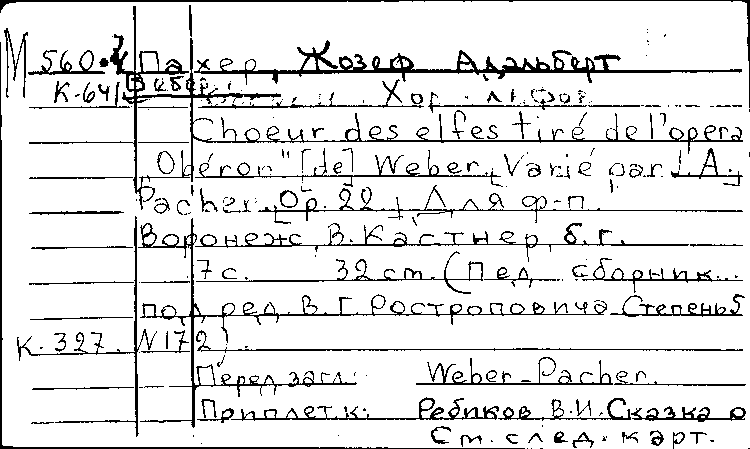 М 560.4 Пахер, Жозеф Адальберт
К-641 Вебер. Хор эльфов
Choeur des elfes tiré de l'opera
„Obéron" [de] Weber. Varié par J. A.
Pacher. Op. 22. Для ф-п.
Воронеж, В. Кастнер, б. г.
7 с. 32 см. (Пед. сборник...
под ред. В. Г. Ростроповича. Степень 5
К. 327. N 172).
Перед загл.: Weber-Pacher.
Приплет. к: Ребиков, В. И. Сказка о
См. след. карт.